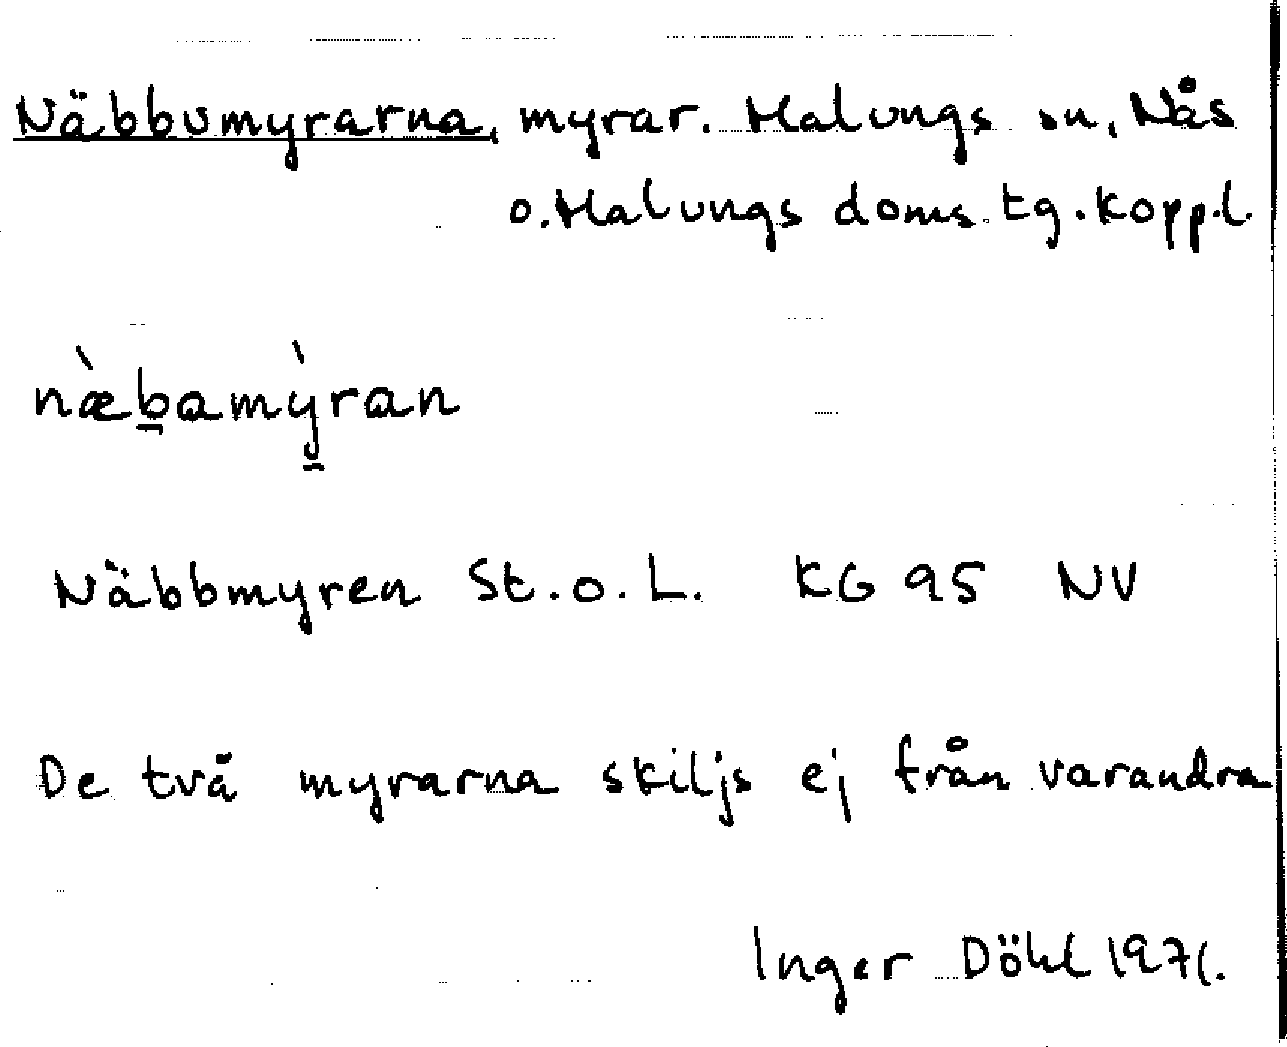 Näbbumyrarna, myrar. Malungs sn, Nås
o. Malungs doms. tg. Koppl.
næ̀b̲amỳ̲ran
Näbbmyren St. o. L. KG 95 NV
De två myrarna skiljs ej från varandra
Inger Döhl 1971.